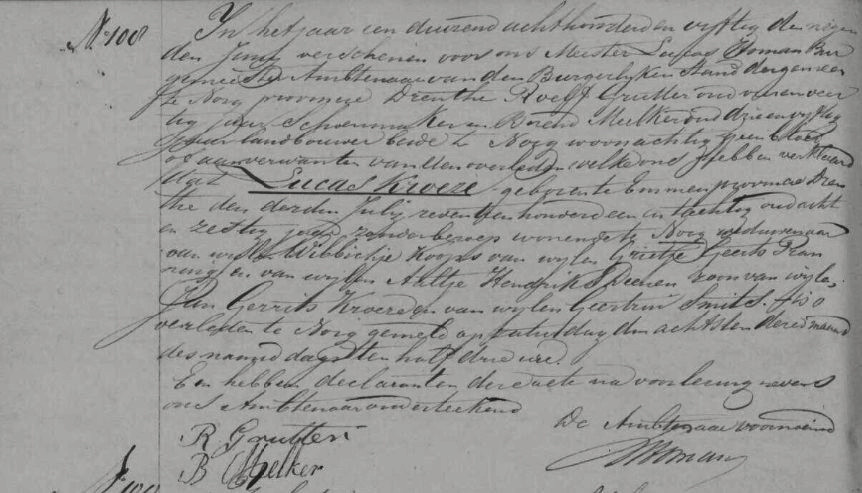 No 108
In het jaar een duizend achthonderd en vyftig den negen
den Juny verschenen voor ons Meester Lucas Homan Bur
gemeester Ambtenaar van den Burgerlyken Stand der gemeen
te Norg provincie Drenthe Roelf Grutter oud vieren veer
tig jaar Schoenmaker en Berend Melker oud drie en vyftig
jaar landbouwer beide te Norg woonachtig geen bloed
of aanverwanten van den overleden welke ons hebben verklaard
dat Lucas Kroeze geboren te Emmen provincie Dren
the den derden July zeventien honderd een en tachtig oud acht
en zestig jaar zonder beroep wonende te Norg weduwenaar
van wylen Wibbichje Koops van wylen Grietje Geerts
en van wylen Aaltje Hendriks Deenen zoon van wylen
Jan Gerrits Kroeze en van wylen Geertrui Smit is
overleden te Norg gemeld op saturdag den achtsten dezer maand
des namiddags ten half drie ure.
En hebben declaranten deze acte na voorlezing nevens
ons Ambtenaar onderteekend
De Ambtenaar voornoemd
R Grutter
B Melker
Homan